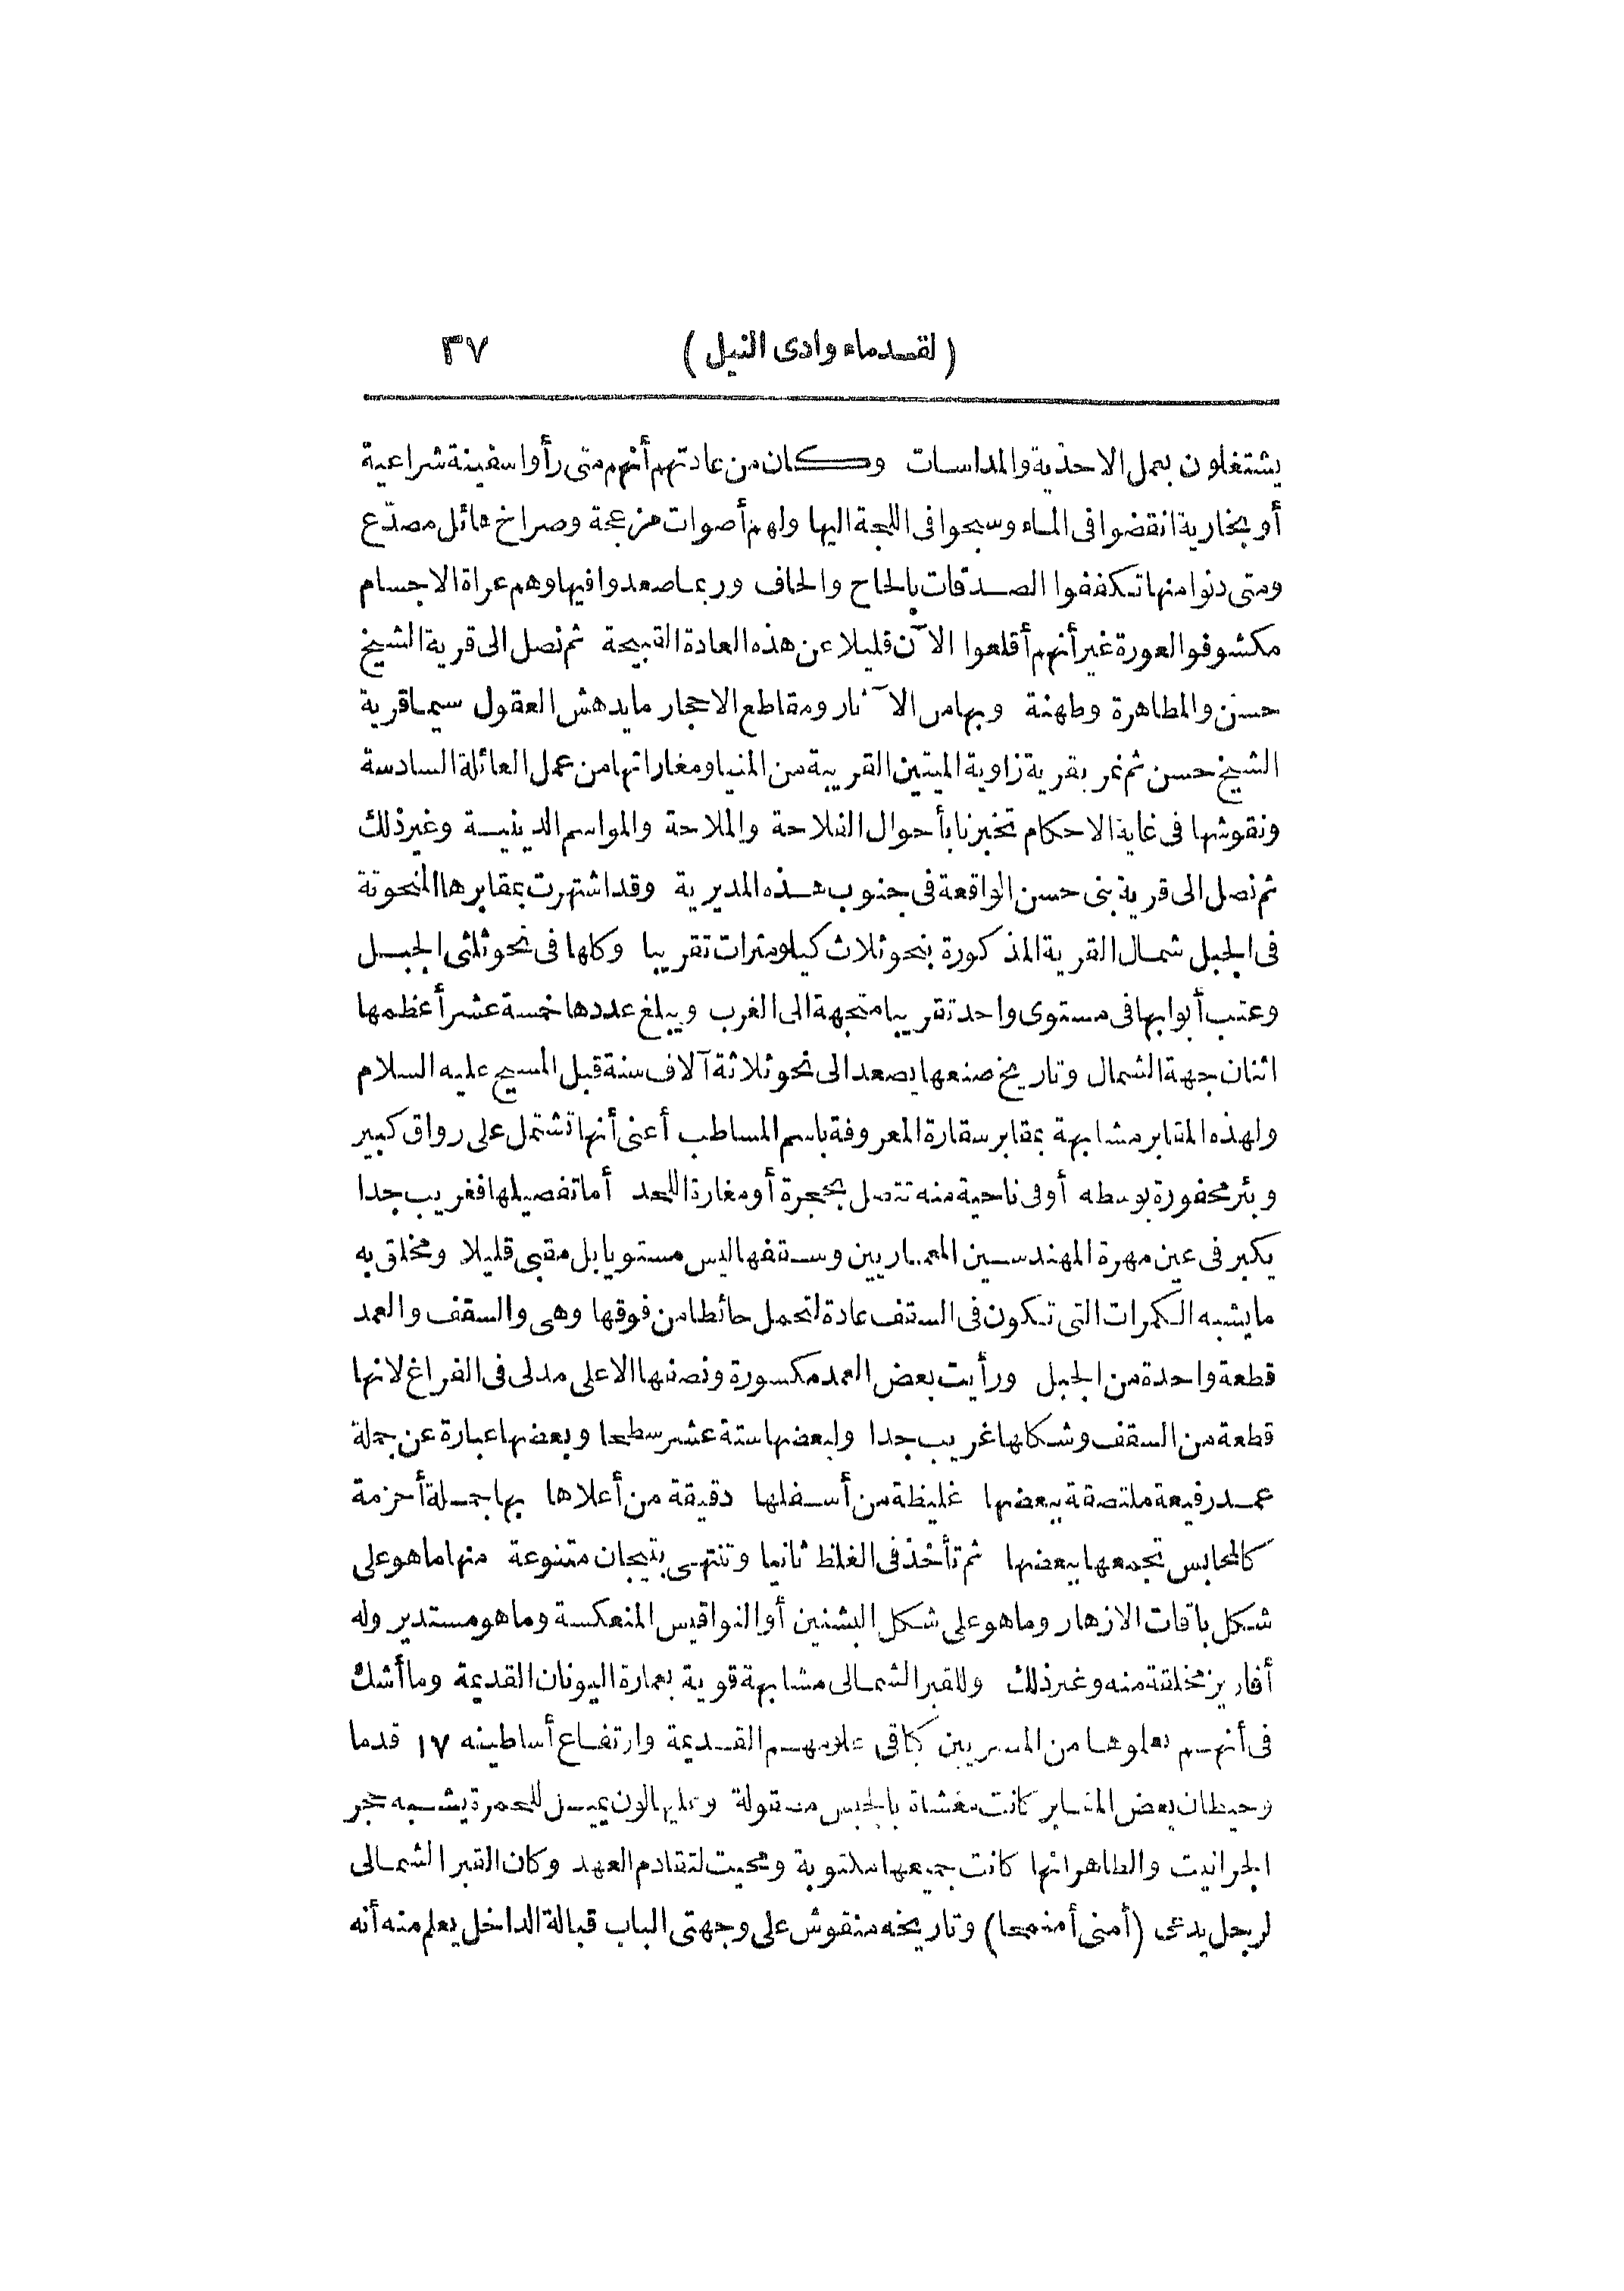 (لقدماء وادى النيل) ٣٧
يشتغلون بعمل الاحذية والمداسات وكان من عادتهم أنهم متى رأوا سفينة شراعية
أو بخارية انقضوا فى الماء وسبحوا فى اللجة اليها ولهم أصوات مزعجة وصراخ هائل مصدّع
ومتى دنوا منها تكففوا الصدقات بالحاح والحاف وربما صعدوا فيها وهم عراة الاجسام
مكشوفو العورة غير أنهم أقلعوا الآن قليلا عن هذه العادة القبيحة ثم نصل الى قرية الشيخ
حسن والمطاهرة وطهنة وبها من الآثار ومقاطع الاحجار ما يدهش العقول سيما قرية
الشيخ حسن ثم نمر بقرية زاوية الميتين القريبة من المنيا ومغاراتها من عمل العائلة السادسة
ونقوشها فى غاية الاحكام تخبرنا بأحوال الفلاحة والملاحة والمواسم الدينية وغير ذلك
ثم نصل الى قرية بنى حسن الواقعة فى جنوب هذه المديرية وقد اشتهرت بمقابرها المنحوتة
فى الجبل شمال القرية المذكورة بنحو ثلاث كيلومترات تقريبا وكلها فى نحو ثلثى الجبل
وعتب أبوابها فى مستوى واحد تقريبا متجهة الى الغرب ويبلغ عددها خمسة عشر أعظمها
اثنان جهة الشمال وتاريخ صنعها يصعد الى نحو ثلاثة آلاف سنة قبل المسيح عليه السلام
ولهذه المقابر مشابهة بمقابر سقارة المعروفة باسم المساطب أعنى أنها تشتمل على رواق كبير
وبئر محفورة بوسطه أو فى ناحية منه تتصل بحجرة أو مغارة اللحد أما تفصيلها فغريب جدا
يكبر فى عين مهرة المهندسين المعماريين وسقفها ليس مستويا بل مقبى قليلا ومخلق به
ما يشبه الكمرات التى تكون فى السقف عادة لتحمل حائطا من فوقها وهى والسقف والعمد
قطعة واحدة من الجبل ورأيت بعض العمد مكسورة ونصفها الاعلى مدلى فى الفراغ لانها
قطعة من السقف وشكلها غريب جدا ولبعضها ستة عشر سطحا وبعضها عبارة عن جملة
عمد رفيعة ملتصقة ببعضها غليظة من أسفلها دقيقة من أعلاها بها جملة أحزمة
كالمحابس تجمعها ببعضها ثم تأخذ فى الغلظ ثانيا وتنتهى بتيجان متنوعة منها ما هو على
شكل باقات الازهار وما هو على شكل البشنين أو النواقيس المنعكسة وما هو مستدير وله
أفاريز مخلقة منه وغير ذلك وللقبر الشمالى مشابهة قوية بعمارة اليونان القديمة وما أشك
فى أنهم تعلموها من المصريين كباقى علومهم القديمة وارتفاع أساطينه ١٧ قدما
وحيطان بعض المقابر كانت مغشاة بالجبس مصقولة وعليها لون يميل للحمرة يشبه حجر
الجرانيت والظاهر انها كانت جميعها مكتوبة ومحيت لتقادم العهد وكان القبر الشمالى
لرجل يدعى (أمنى أمنمحا) وتاريخه منقوش على وجهتى الباب قبالة الداخل يعلم منه أنه